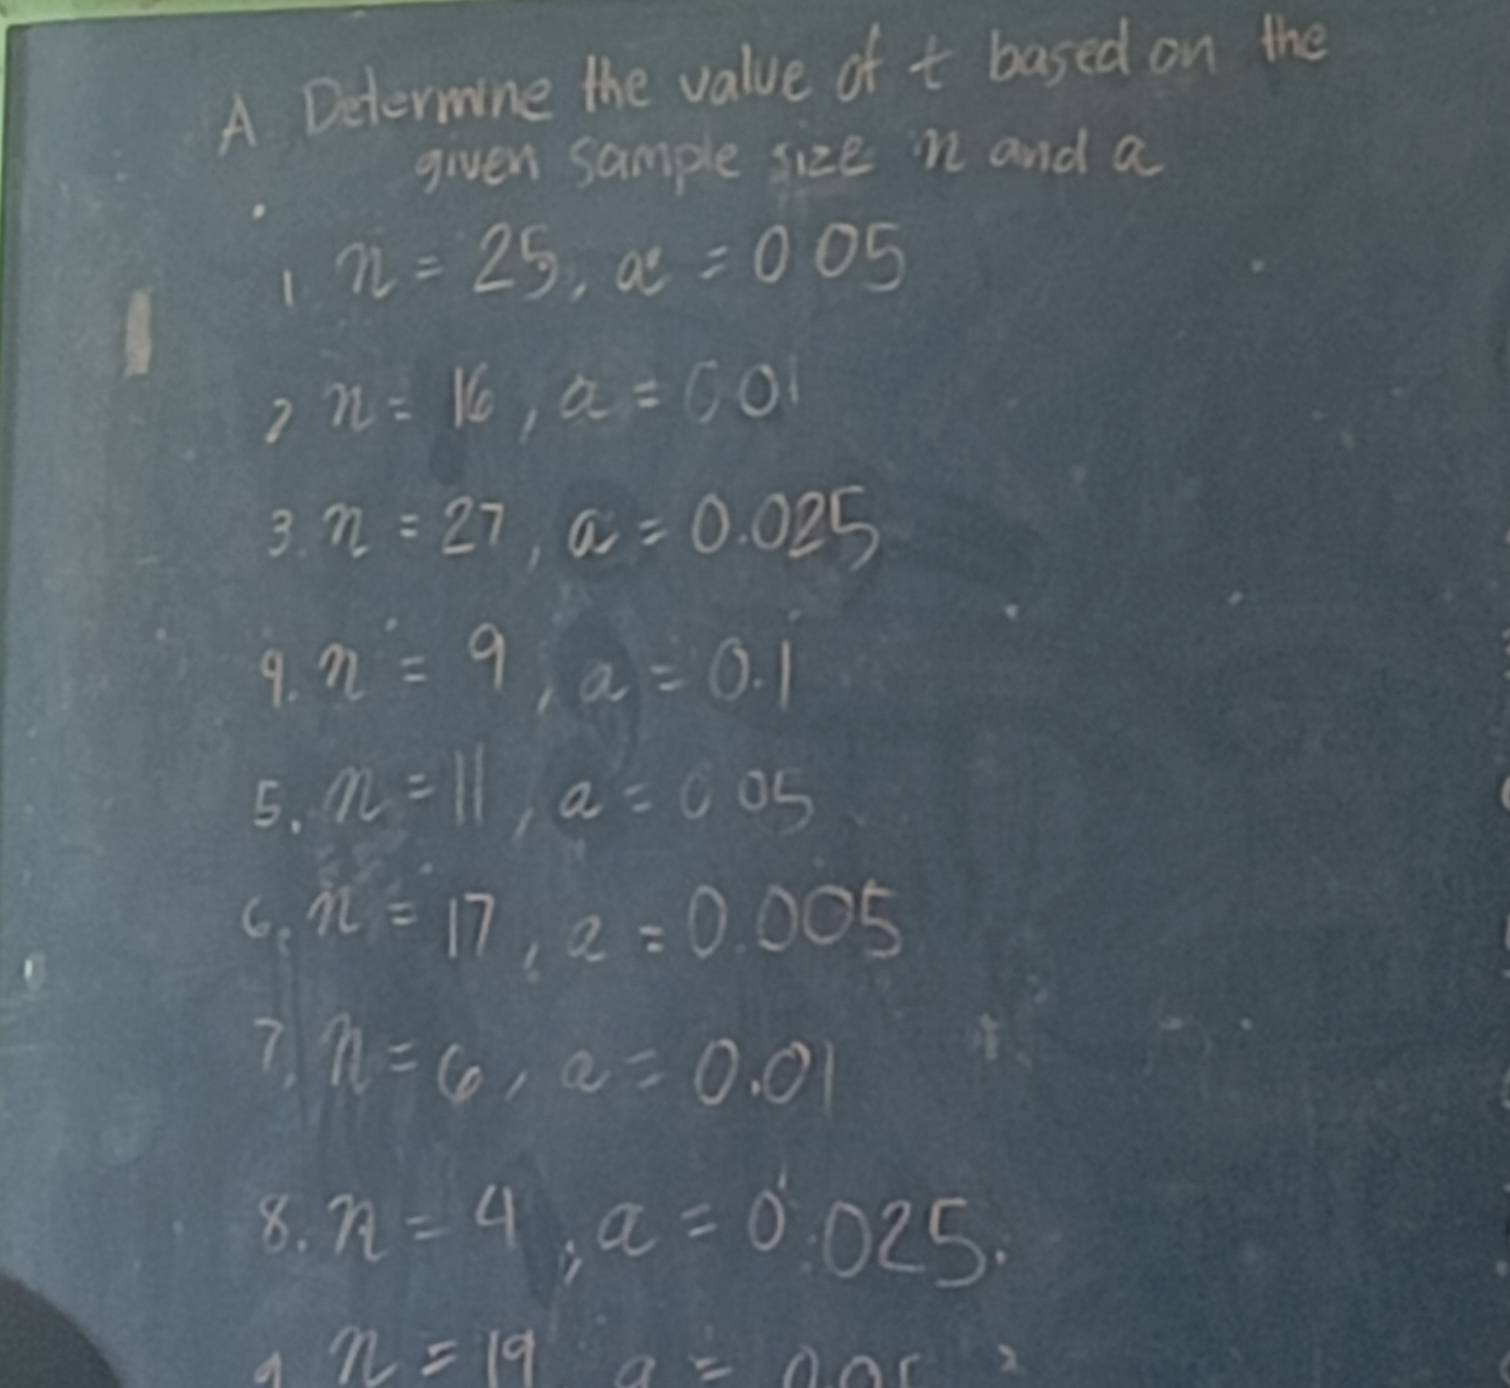 A Determine the value of t based on the
given sample size n and a
1. n = 25, a = 0.05
2 n = 16, a = 0.01
3. n = 27, a = 0.025
4. n = 9, a = 0.1
5. n = 11, a = 0.05
6. n = 17, a = 0.005
7. n = 6, a = 0.01
8. n = 4, a = 0.025.
9 n = 19 a =